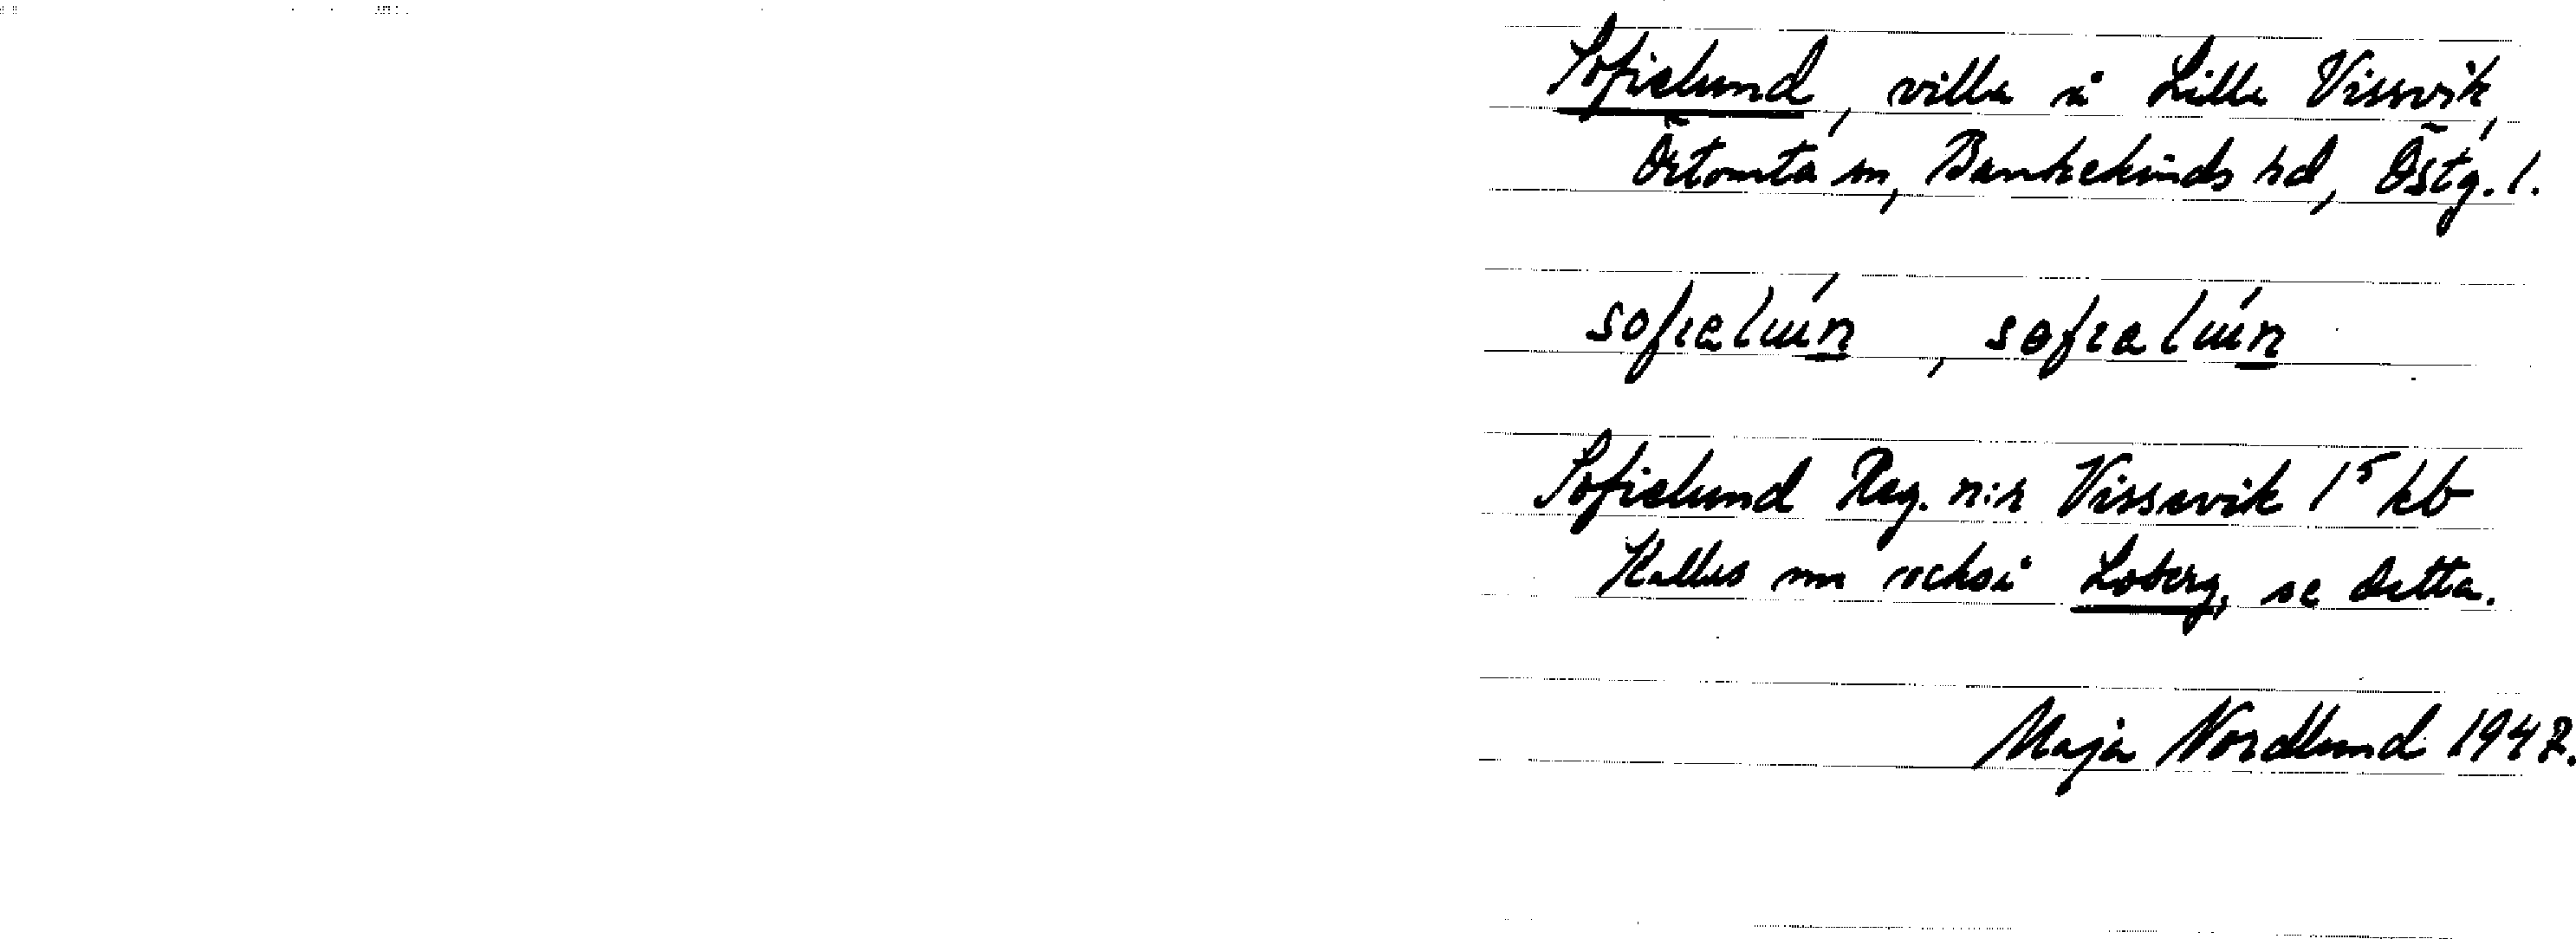 Sofielund, villa å Lilla Vissvik,
Örtomta sn, Bankekinds hd, Östg. l.
sofielún, sofialún
Sofielund Reg. n:r Vissavik 1⁵ kb
Kallas nu också Loberg, se detta.
Maja Nordlund 1947.